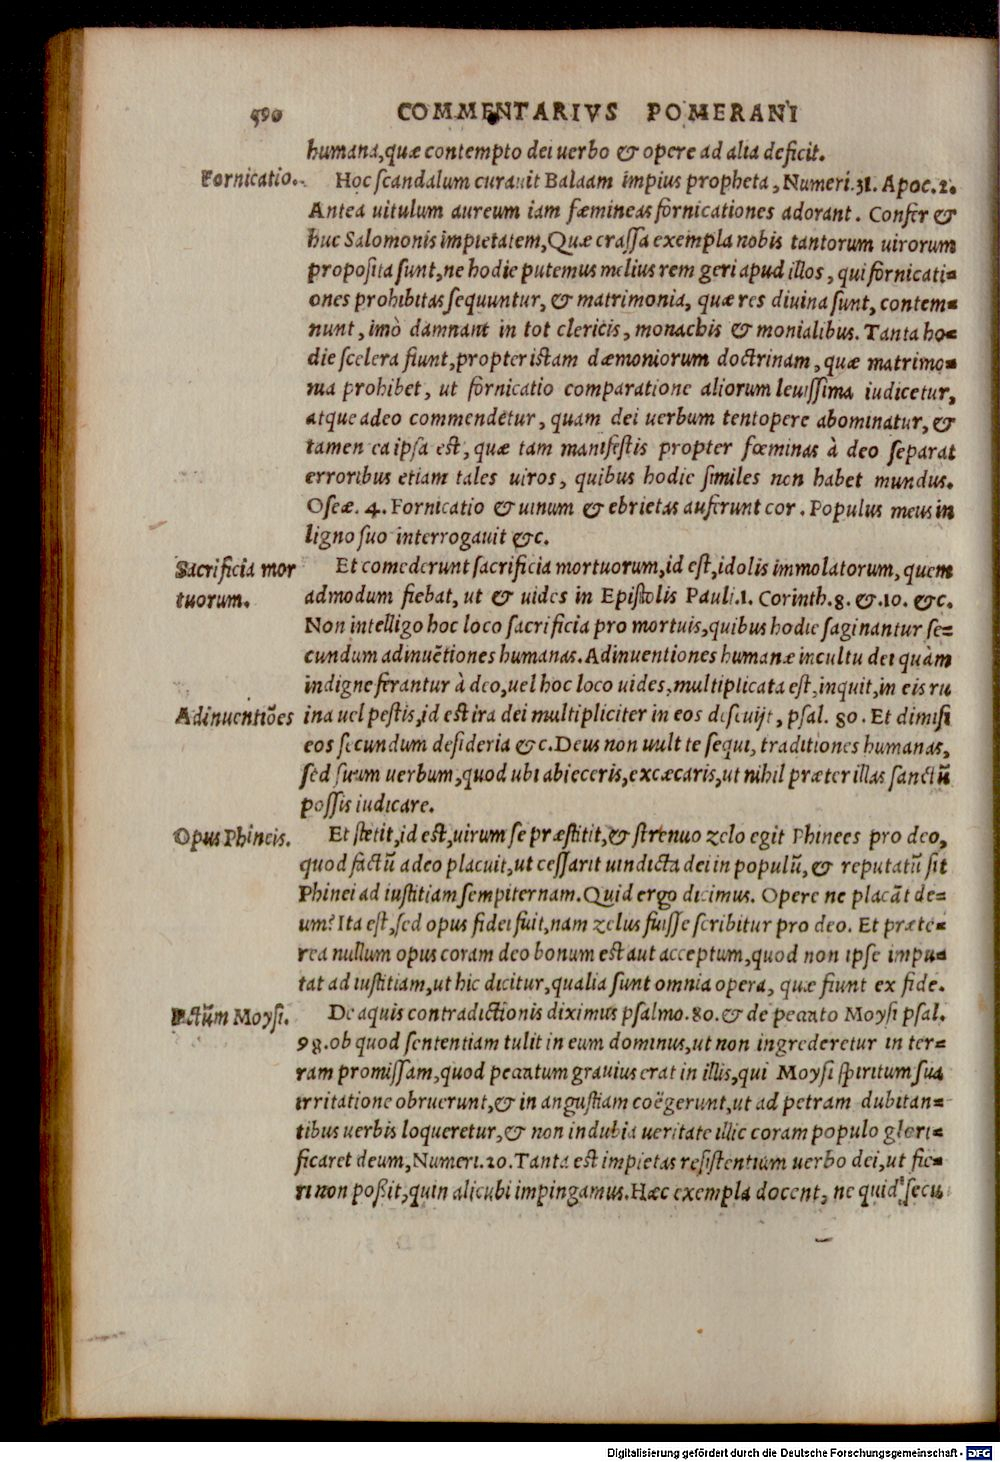 590 COMMENTARIVS POMERANI
humana, quæ contempto dei uerbo & opere ad alia deficit.
Fornicatio. Hoc scandalum curauit Balaam impius propheta, Numeri.31. Apoc.2.
Antea uitulum aureum iam fœmineas fornicationes adorant. Confer &
huc Salomonis impietatem, Quæ crassa exempla nobis tantorum uirorum
proposita sunt, ne hodie putemus melius rem geri apud illos, qui fornicati=
ones prohibitas sequuntur, & matrimonia, quæ res diuina sunt, contem=
nunt, imò damnant in tot clericis, monachis & monialibus. Tanta ho=
die scelera fiunt, propter istam dæmoniorum doctrinam, quæ matrimo=
nia prohibet, ut fornicatio comparatione aliorum leuissima iudicetur,
atque adeo commendetur, quam dei uerbum tentopere abominatur, &
tamen ea ipsa est, quæ tam manifestis propter fœminas à deo separat
erroribus etiam tales uiros, quibus hodie similes non habet mundus.
Oseæ. 4. Fornicatio & uinum & ebrietas auferunt cor. Populus meus in
ligno suo interrogauit &c.
Sacrificia mor Et comederunt sacrificia mortuorum, id est, idolis immolatorum, quem
tuorum. admodum fiebat, ut & uides in Epistolis Pauli.1. Corinth.8. &.10. &c.
Non intelligo hoc loco sacrificia pro mortuis, quibus hodie saginantur se=
cundum adinuētiones humanas. Adinuentiones humanæ in cultu dei quàm
indigne ferantur à deo, uel hoc loco uides, multiplicata est, inquit, in eis ru
Adinuentiōes ina uel pestis, id est ira dei multipliciter in eos desæuijt, psal. 80. Et dimisi
eos secundum desideria &c. Deus non uult te sequi, traditiones humanas,
sed suum uerbum, quod ubi abieceris, excæcaris, ut nihil præter illas sanctū
possis iudicare.
Opus Phineis. Et stetit, id est, uirum se præstitit, & strenuo zelo egit Phinees pro deo,
quod factū adeo placuit, ut cessarit uindicta dei in populū, & reputatū sit
Phinei ad iustitiam sempiternam. Quid ergo dicimus. Opere ne placāt de=
um? Ita est, sed opus fidei fuit, nam zelus fuisse scribitur pro deo. Et præte=
rea nullum opus coram deo bonum est aut acceptum, quod non ipse impu=
tat ad iustitiam, ut hic dicitur, qualia sunt omnia opera, quæ fiunt ex fide.
Pctūm Moysi. De aquis contradictionis diximus psalmo.80. & de peccato Moysi psal.
98. ob quod sententiam tulit in eum dominus, ut non ingrederetur in ter=
ram promissam, quod peccatum grauius erat in illis, qui Moysi spiritum sua
irritatione obruerunt, & in angustiam coëgerunt, ut ad petram dubitan=
tibus uerbis loqueretur, & non indubia ueritate illic coram populo glori=
ficaret deum, Numeri.20. Tanta est impietas resistentium uerbo dei, ut fie=
ri non poßit, quin alicubi impingamus. Hæc exempla docent, ne quid secu
Digitalisierung gefördert durch die Deutsche Forschungsgemeinschaft - DFG